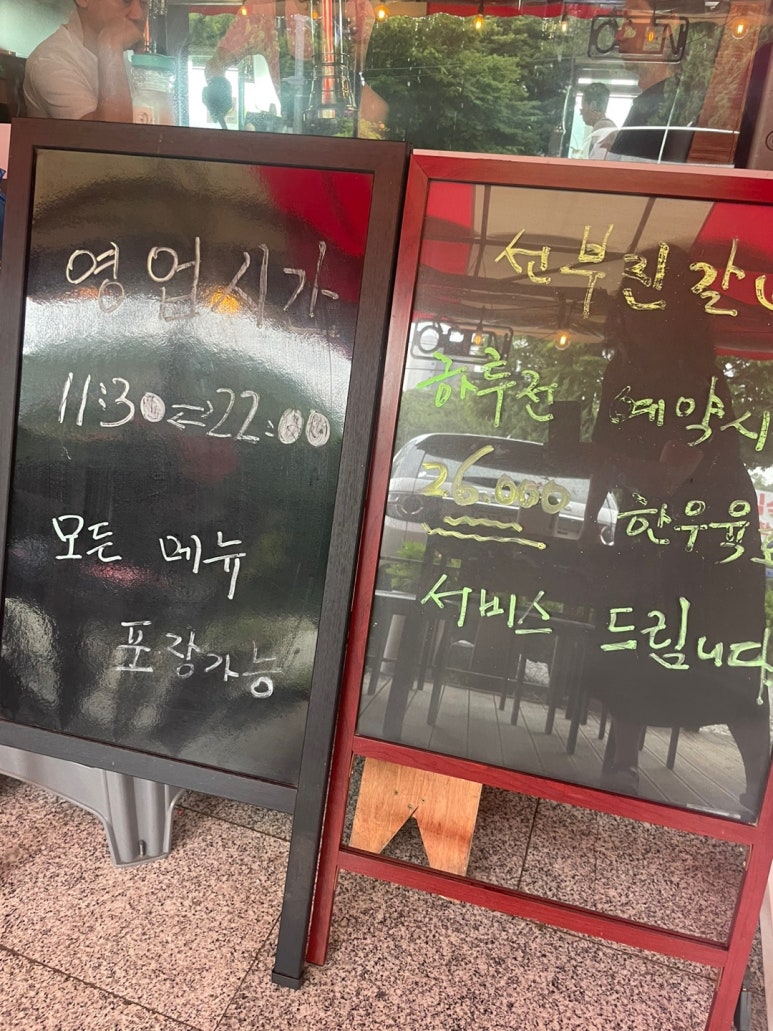 OPEN
영업시간
11:30⇄22:00
모든 메뉴
포장가능
선부린갈
하루전 예약시
26.000 한우육
서비스 드립니다